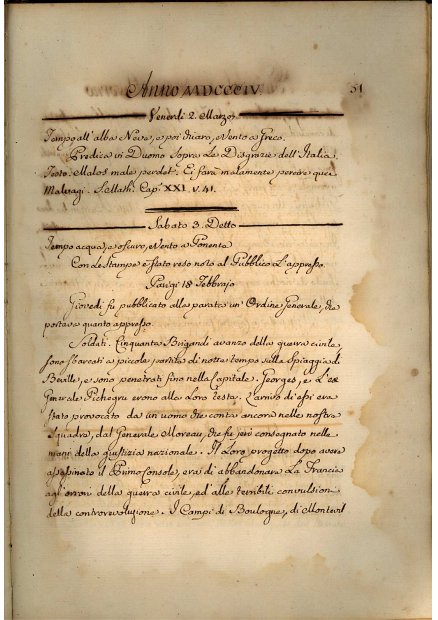 Anno MDCCCIV.
51
Venerdì 2. Marzo
Tempo all'alba Neve, e poi chiaro, e Vento a Greco.
Predica in Duomo sopra Le Disgrazie dell'Italia.
Testo. Malos male perdet. Ci farà malamente perire quei
Malvagi. S. Matth. Cap. XXI. v. 41.
Sabato 3. Detto
Tempo acqua, e oscuro, e Vento a Ponente
Con Le Stampe è stato reso noto al Pubblico L'appresso.
Parigi 18 Febbrajo
Giovedì fu pubblicato alla parata un'Ordine Generale, che
portava quanto appresso.
Soldati. Cinquanta Brigandi avanzo della guerra civile,
sono sbarcati a piccole partite di notte tempo sulla Spiaggia di
Beville, e sono penetrati fino nella Capitale. Georges, e L'ex
Generale Pichegru erono alla Loro testa. L'arrivo d'essi era
stato provocato da un uomo che conta ancora nelle nostre
Squadre, dal Generale Moreau, che fu jeri consegnato nelle
mani della giustizia nazionale. Il Loro progetto dopo avere
assassinato il Primo Console, era di abbandonare La Francia
agl'orrori della guerra civile, ed alle terribili convulsioni
della controrevoluzione. I Campi di Boulogne, di Montevil